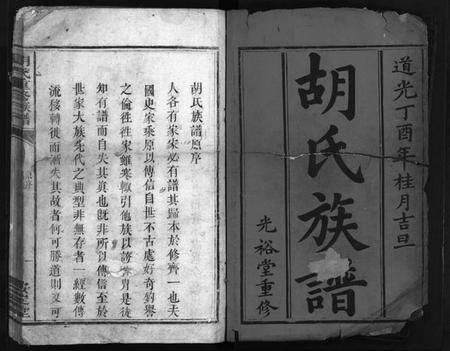 道光丁酉年桂月吉旦
胡氏族譜
光裕堂重修
胡氏族譜原序
人各有家家必有譜其歸本於修齊一也夫
國史家乘原以傳信自世不古處好奇釣譽
之倫往往宋雖寒輙引他族以誇
是徒
知有譜而自失其真也既非所以傳信至於
世家大族先代之典型非無存者一經數傳
流移轉徙而漸失其故者何可勝道則又可